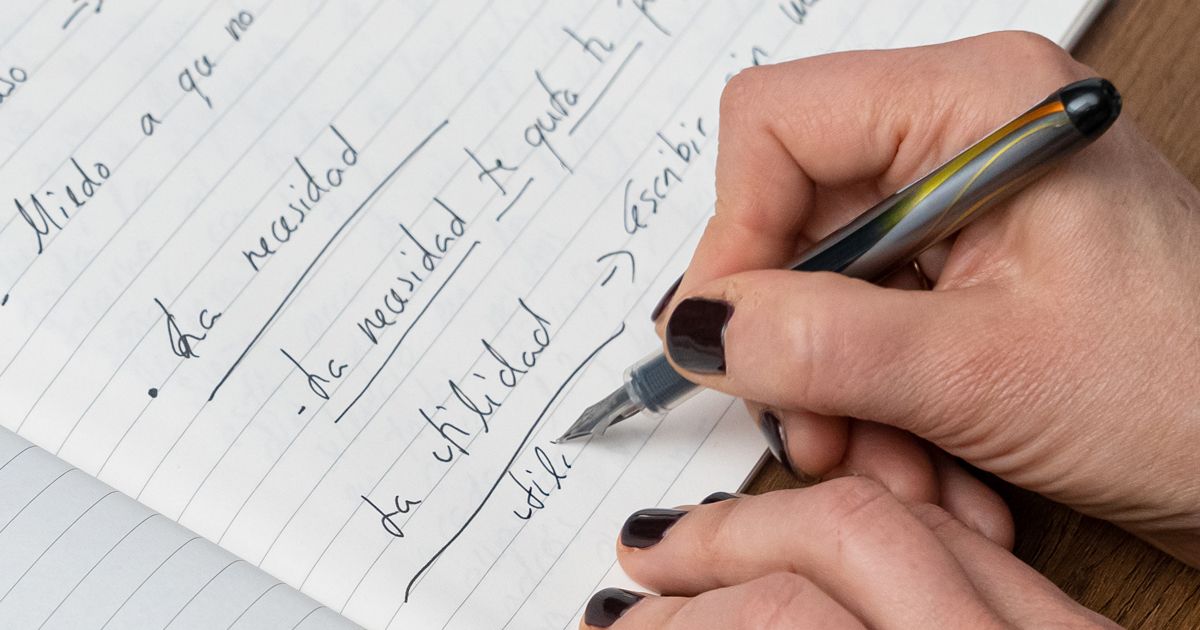 Miedo a que no
· La necesidad
- La necesidad te quita ti
La utilidad => escribir
utili